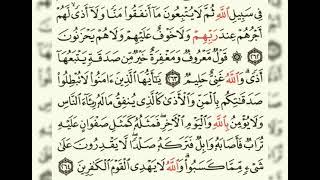 فِى سَبِيلِ ٱللَّهِ ثُمَّ لَا يُتْبِعُونَ مَآ أَنفَقُوا۟ مَنًّا وَلَآ أَذًى لَّهُمْ
أَجْرُهُمْ عِندَ رَبِّهِمْ وَلَا خَوْفٌ عَلَيْهِمْ وَلَا هُمْ يَحْزَنُونَ
۝٢٦٢ قَوْلٌ مَّعْرُوفٌ وَمَغْفِرَةٌ خَيْرٌ مِّن صَدَقَةٍ يَتْبَعُهَآ
أَذًى وَٱللَّهُ غَنِىٌّ حَلِيمٌ ۝٢٦٣ يَٰٓأَيُّهَا ٱلَّذِينَ ءَامَنُوا۟ لَا تُبْطِلُوا۟
صَدَقَٰتِكُم بِٱلْمَنِّ وَٱلْأَذَىٰ كَٱلَّذِى يُنفِقُ مَالَهُۥ رِئَآءَ ٱلنَّاسِ
وَلَا يُؤْمِنُ بِٱللَّهِ وَٱلْيَوْمِ ٱلْءَاخِرِ فَمَثَلُهُۥ كَمَثَلِ صَفْوَانٍ عَلَيْهِ
تُرَابٌ فَأَصَابَهُۥ وَابِلٌ فَتَرَكَهُۥ صَلْدًا لَّا يَقْدِرُونَ عَلَىٰ
شَىْءٍ مِّمَّا كَسَبُوا۟ وَٱللَّهُ لَا يَهْدِى ٱلْقَوْمَ ٱلْكَٰفِرِينَ ۝٢٦٤